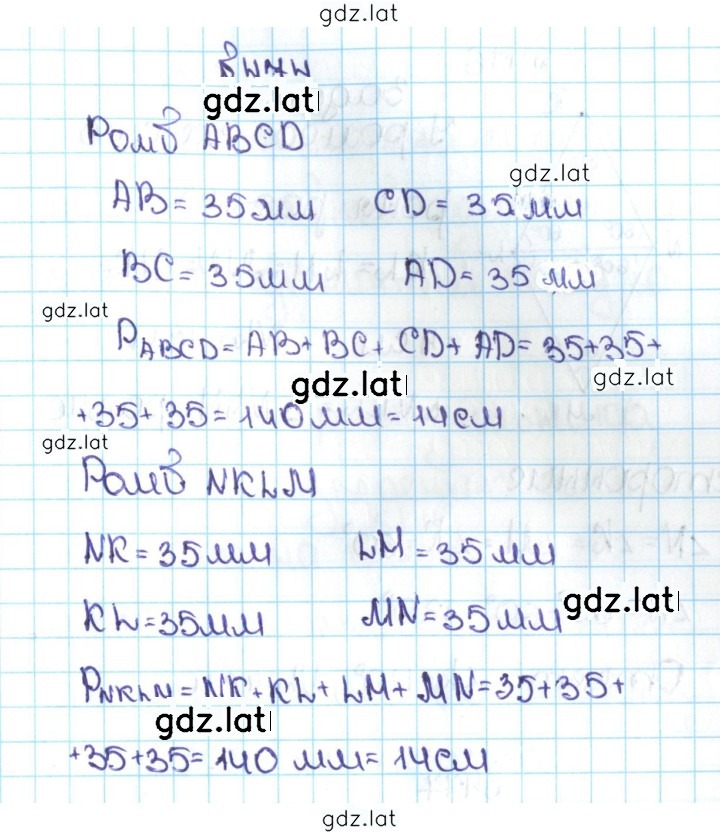 gdz.lat
gdz.lat
Ромб ABCD
gdz.lat
AB = 35 мм CD = 35 мм
BC = 35 мм AD = 35 мм
gdz.lat
PABCD = AB + BC + CD + AD = 35 + 35 +
gdz.lat gdz.lat
+ 35 + 35 = 140 мм = 14 см
gdz.lat
Ромб NKLM
NK = 35 мм LM = 35 мм
gdz.lat
KL = 35 мм MN = 35 мм
PNKLN = NK + KL + LM + MN = 35 + 35 +
gdz.lat
+ 35 + 35 = 140 мм = 14 см
gdz.lat